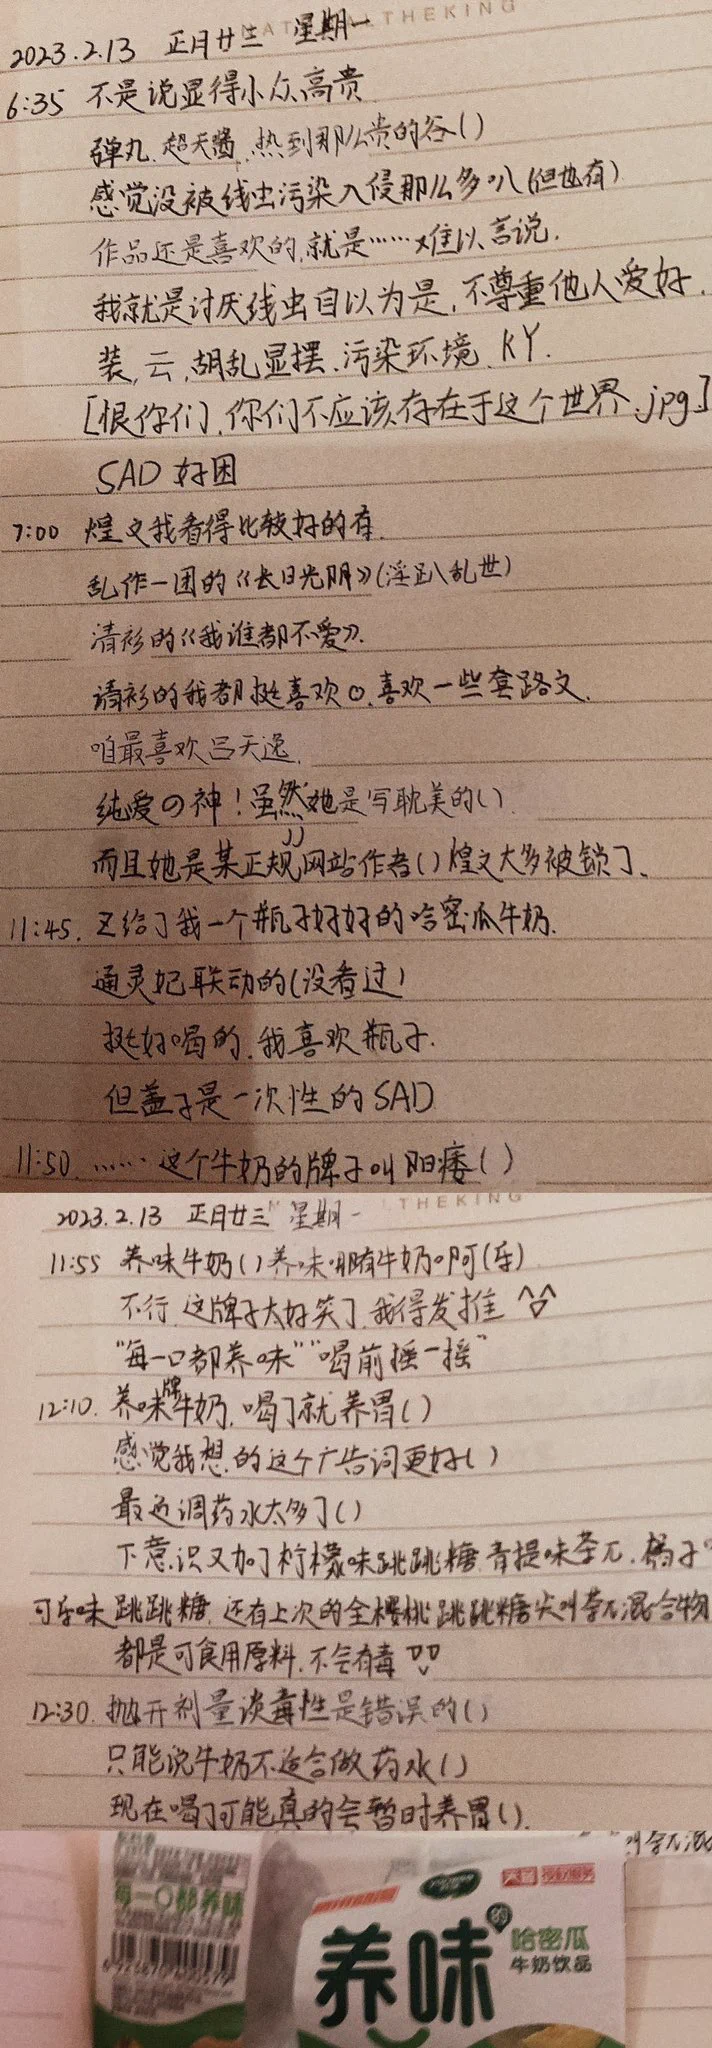 NATURALTHEKING
2023.2.13 正月廿三 星期一
6:35 不是说显得小众高贵
弹丸、超天酱、热到那么贵的谷()
感觉没被线虫污染入侵那么多叭(但也有)
作品还是喜欢的,就是……难以言说.
我就是讨厌线虫自以为是,不尊重他人爱好.
装,云,胡乱显摆.污染环境、KY.
[恨你们,你们不应该存在于这个世界.jpg]
SAD 好困
7:00 煌文我看得比较好的有.
乱作一团的《长日光阴》(淫趴乱世)
清衫的《我谁都不爱》.
清衫的我都挺喜欢o.喜欢一些套路文.
咱最喜欢吕天逸.
纯爱の神!虽然她是写耽美的().
JJ
而且她是某正规网站作者()煌文大多被锁了、
11:45. Z给了我一个瓶子好好的哈密瓜牛奶.
通灵妃联动的(没看过)
挺好喝的.我喜欢瓶子.
但盖子是一次性的SAD
11:50. ……这个牛奶的牌子叫阳痿()
THEKING
2023.2.13 正月廿三 星期一
11:55 养味牛奶()养味哪有牛奶啊(乐)
不行.这牌子太好笑了.我得发推
"每一口都养味""喝前摇一摇"
12:10. 养味牌牛奶,喝了就养胃()
感觉我想的这个广告词更好()
最近调药水太多了()
下意识又加了柠檬味跳跳糖.青提味李子.橘子
可乐味跳跳糖.还有上次的全樱桃跳跳糖尖叫混合物
都是可食用原料.不会有毒
12:30. 抛开剂量谈毒性是错误的()
只能说牛奶不适合做药水()
现在喝了可能真的会暂时养胃().
每一口都养味
养味的
哈密瓜
牛奶饮品